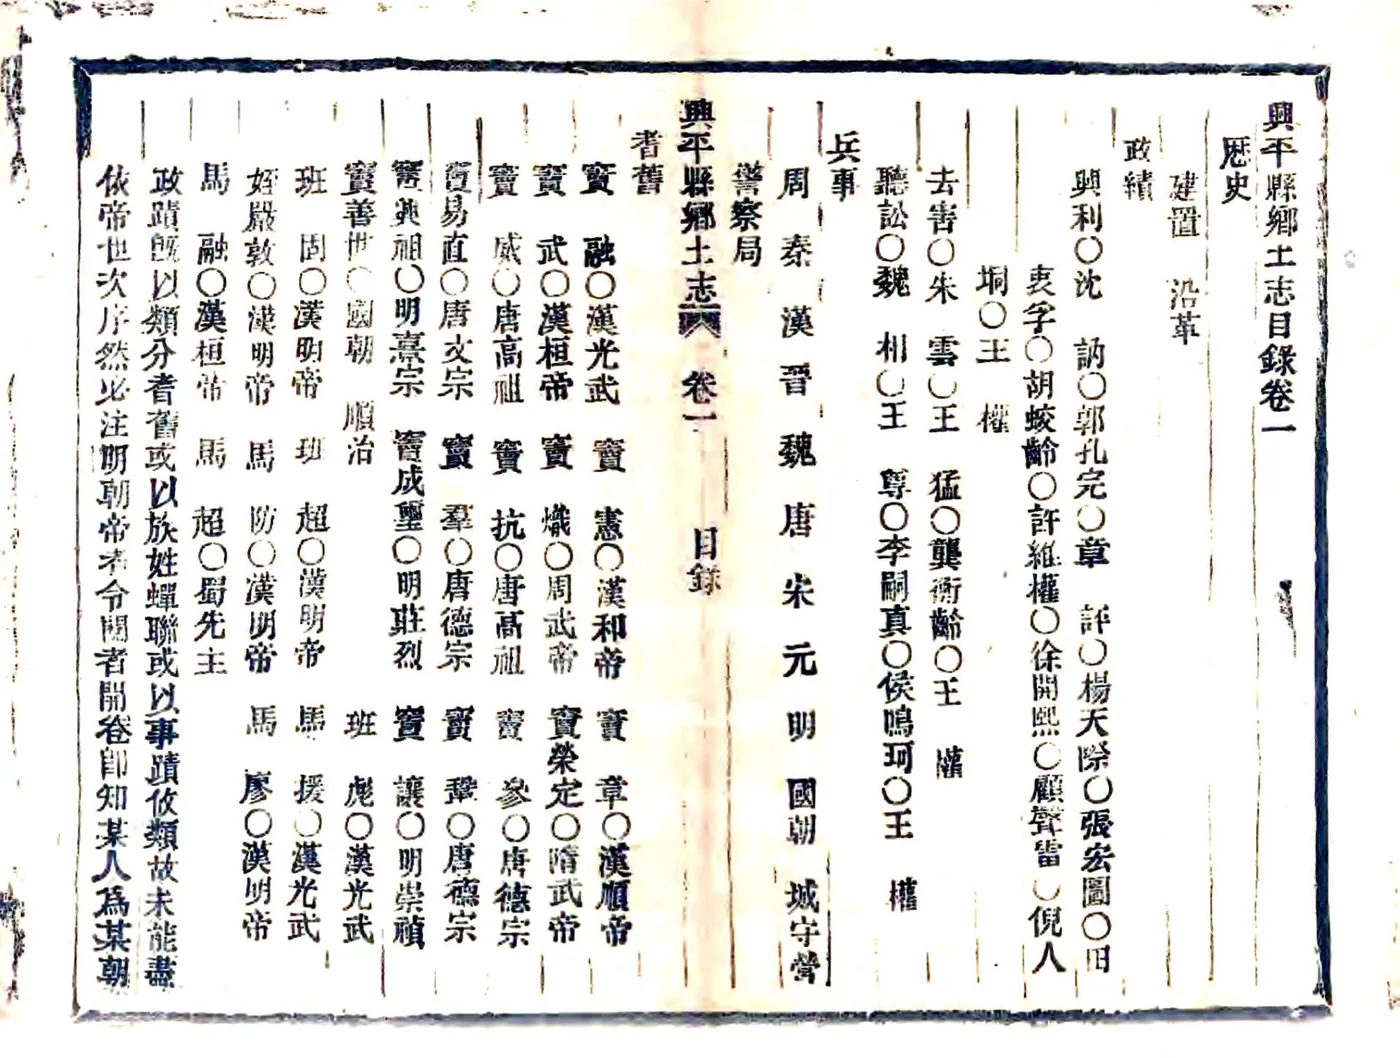 興平縣鄉土志目錄卷一
歷史
建置 沿革
政績
興利〇沈 訥〇郭孔完〇章 評〇楊天際〇張宏圖〇田
衷孚〇胡蛟齡〇許維權〇徐開熙〇顧聲雷〇倪人
垌〇王 權
去害〇朱 雲〇王 猛〇龔衡齡〇王 權
聽訟〇魏 相〇王 尊〇李嗣真〇侯鳴珂〇王 權
兵事
周 秦 漢 晉 魏 唐 宋 元 明 國朝 城守營
警察局
興平縣鄉土志 卷一 目錄
耆舊
竇 融〇漢光武 竇 憲〇漢和帝 竇 章〇漢順帝
竇 武〇漢桓帝 竇 熾〇周武帝 竇榮定〇隋武帝
竇 威〇唐高祖 竇 抗〇唐高祖 竇 參〇唐德宗
竇易直〇唐文宗 竇 羣〇唐德宗 竇 鞏〇唐德宗
竇興祖〇明熹宗 竇成璽〇明莊烈 竇 讓〇明崇禎
竇善世〇國朝 順治 班 彪〇漢光武
班 固〇漢明帝 班 超〇漢明帝 馬 援〇漢光武
姪嚴敦〇漢明帝 馬 防〇漢明帝 馬 廖〇漢明帝
馬 融〇漢桓帝 馬 超〇蜀先主
政蹟既以類分耆舊或以族姓蟬聯或以事蹟攸類故未能盡
依帝世次序然必注明朝帝者令閱者開卷即知某人為某朝